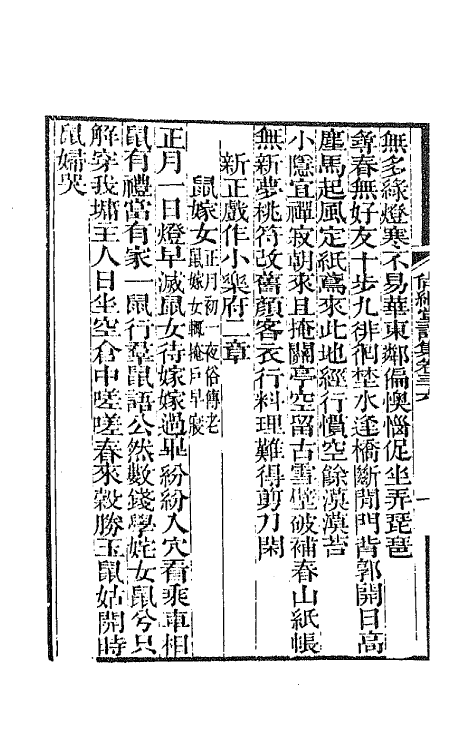 無多綠燈寒不易華東鄰偏懊惱促坐弄琵琶
尋春無好友十步九徘徊埜水逢橋斷閒門背郭開日高
塵馬起風定紙鳶來此地經行慣空餘漠漠苔
小隱宜禪寂朝來且掩關亭空留古雪壁破補春山紙帳
無新夢桃符改舊顏客衣行料理難得剪刀閑
新正戲作小樂府二章
鼠嫁女正月初一夜俗傳老
鼠嫁女輒掩戸早寢
正月一日燈早滅鼠女待嫁嫁過畢紛紛入穴看乘車相
鼠有禮當有家一鼠行羣鼠語公然數錢學姹女鼠兮只
解穿我墉主人日坐空倉中嗟嗟春來穀勝玉鼠姑開時
鼠婦哭